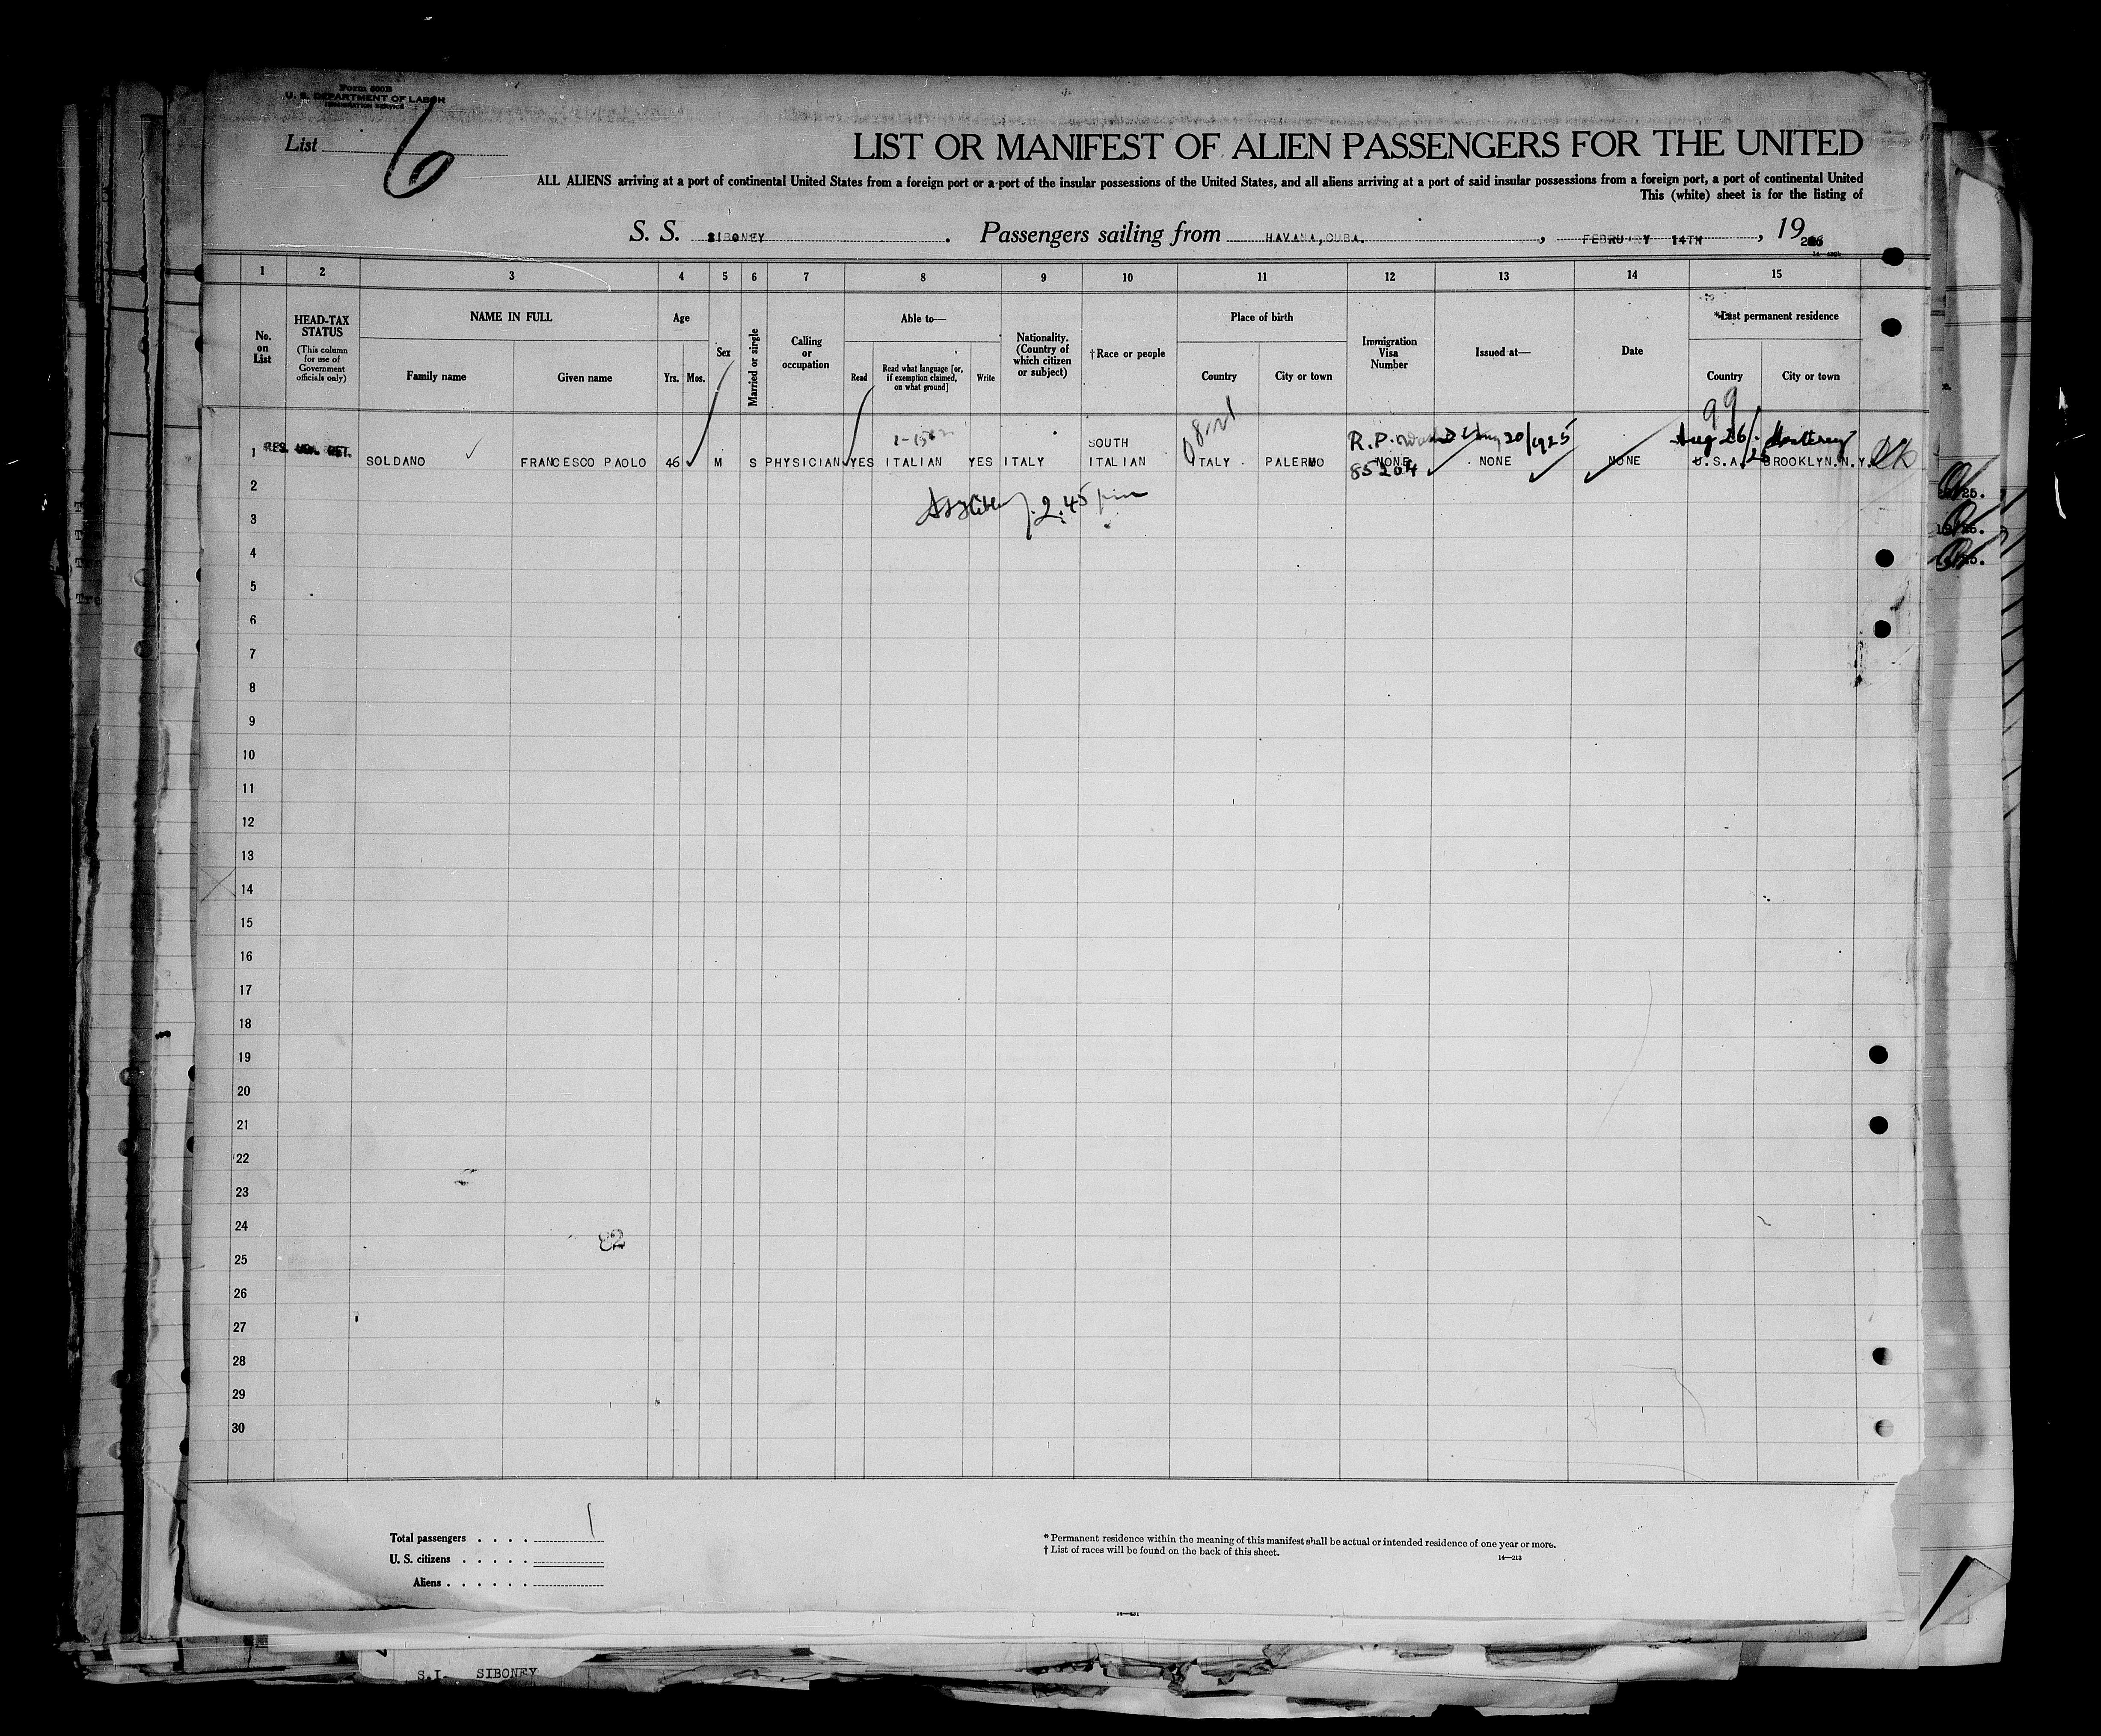 Form 500B
U. S. DEPARTMENT OF LABOR
IMMIGRATION SERVICE
List 6
LIST OR MANIFEST OF ALIEN PASSENGERS FOR THE UNITED
ALL ALIENS arriving at a port of continental United States from a foreign port or a port of the insular possessions of the United States, and all aliens arriving at a port of said insular possessions from a foreign port, a port of continental United
This (white) sheet is for the listing of
S. S. SIBONEY . Passengers sailing from HAVANA, CUBA. , FEBRUARY 14TH , 1926
1 2 3 4 5 6 7 8 9 10 11 12 13 14 15
No. on List
HEAD-TAX STATUS
(This column for use of Government officials only)
NAME IN FULL
Family name
Given name
Age
Yrs. Mos.
Sex
Married or single
Calling or occupation
Able to—
Read
Read what language [or, if exemption claimed, on what ground]
Write
Nationality. (Country of which citizen or subject)
†Race or people
Place of birth
Country
City or town
Immigration Visa Number
Issued at—
Date
*Last permanent residence
Country
City or town
99
R.P. Aug 20/1925
Aug 26/25 Monterey
SOUTH
1 SOLDANO FRANCESCO PAOLO 46 M S PHYSICIAN YES ITALIAN YES ITALY ITALIAN ITALY PALERMO NONE NONE NONE U.S.A. BROOKLYN.N.Y.
85204
2.45 pm
2
3
4
5
6
7
8
9
10
11
12
13
14
15
16
17
18
19
20
21
22
23
24
82
25
26
27
28
29
30
Total passengers . . . . 1
U. S. citizens . . . . .
Aliens . . . . . .
* Permanent residence within the meaning of this manifest shall be actual or intended residence of one year or more.
† List of races will be found on the back of this sheet.
14—213
S.I. SIBONEY